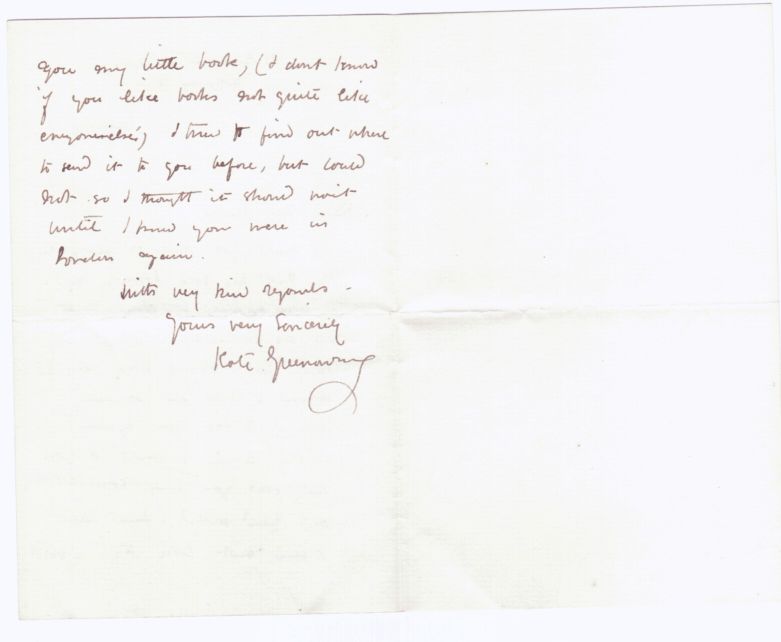 you my little book, (I dont know
if you like books not quite like
everyone else's) I tried to find out where
to send it to you before, but could
not so I thought it should wait
until I knew you were in
London again.
With very kind regards -
Yours very Sincerely
Kate Greenaway